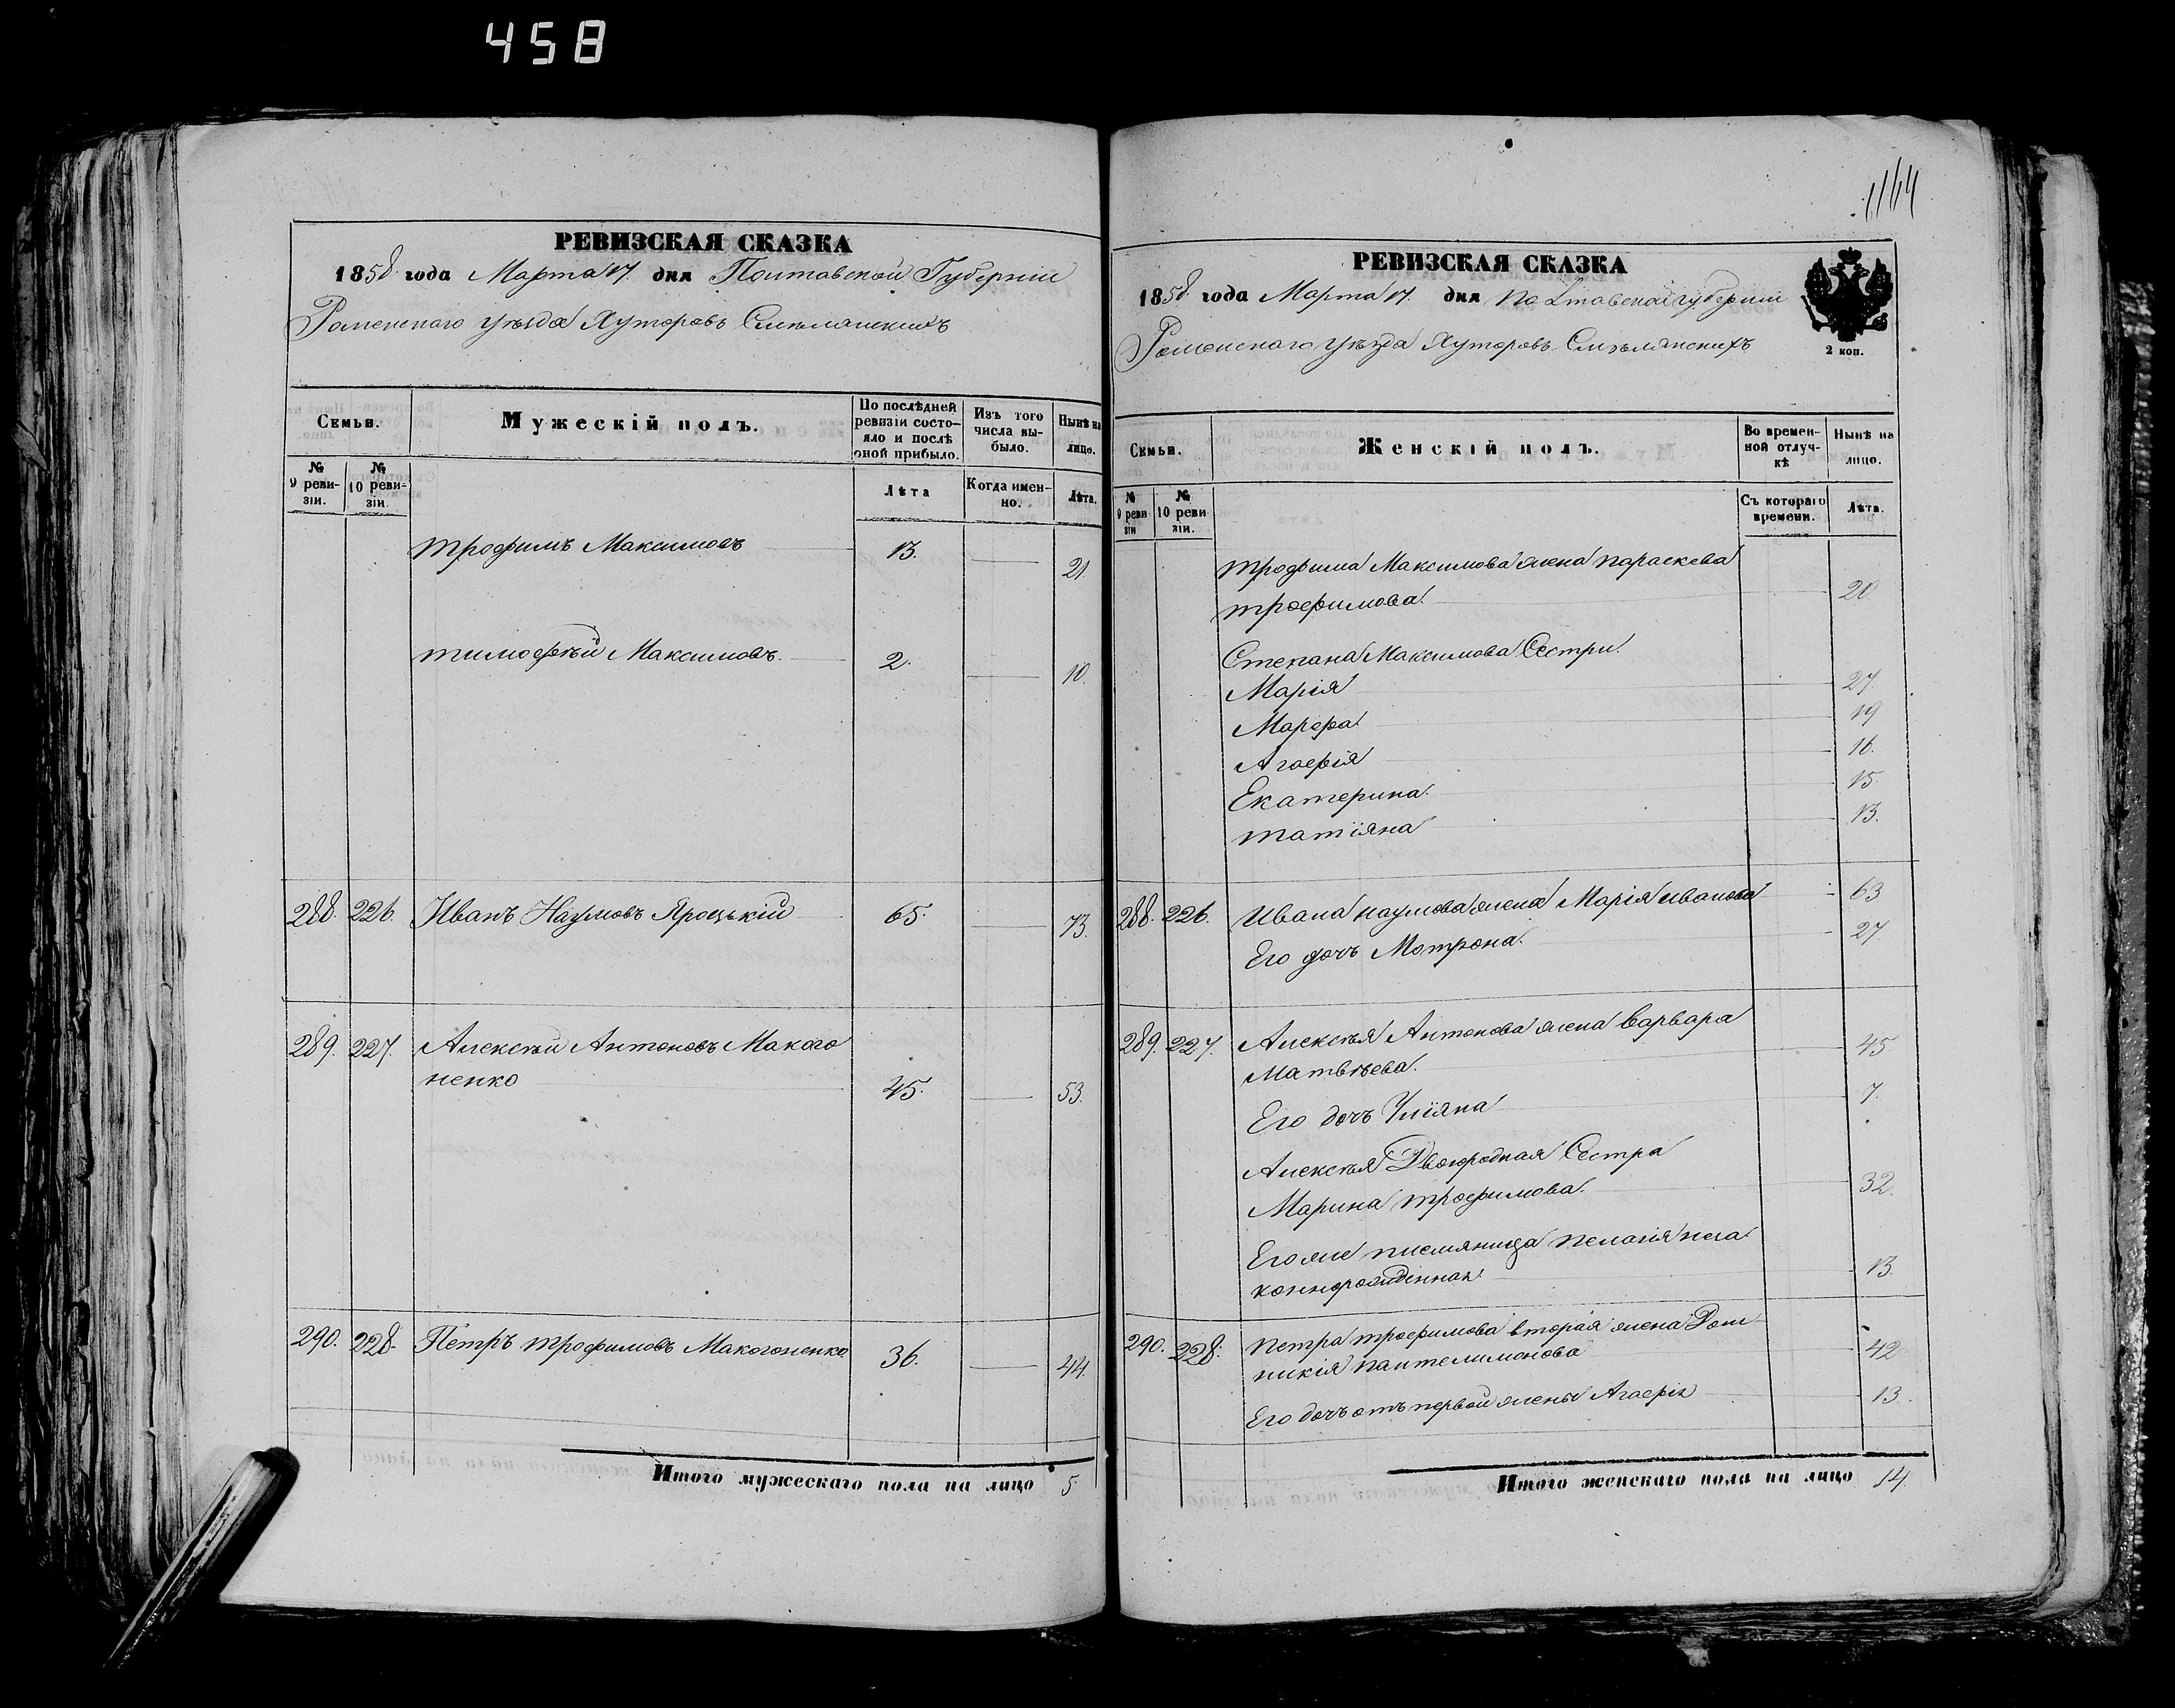 458
1164
РЕВИЗСКАЯ СКАЗКА
1858 года Марта 17. дня Полтавской Губерніи
Роменскаго уѣзда Хуторовъ Смѣлянскихъ
Семьи.
Мужескій полъ.
По послѣдней ревизіи состояло и послѣ оной прибыло.
Изъ того числа выбыло.
Нынѣ на лицо.
№ 9 ревизіи.
№ 10 ревизіи.
Лѣта
Когда именно.
Лѣта.
Трофимъ Максимовъ 13. 21.
Тимофѣй Максимовъ. 2. 10.
288. 226. Иванъ Наумовъ Яроцькій 65. 73.
289. 227. Алексѣй Антоновъ Макого
ненко 45. 53.
290. 228. Петръ Трофимовъ Макогоненко 36. 44.
Итого мужескаго пола на лицо 5
РЕВИЗСКАЯ СКАЗКА
1858 года Марта 17. дня Полтавской губерніи
Роменскаго уѣзда Хуторовъ Смѣлянскихъ
2 коп.
Семьи.
Женскій полъ.
Во временной отлучкѣ
Нынѣ на лицо.
№ 9 ревизіи
№ 10 ревизіи.
Съ котораго времени.
Лѣта.
Трофима Максимова жена Параскева
Трофимова. 20
Степана Максимова Сестри.
Марія 27.
Марфа 19
Агафія 16.
Екатерина 15.
Татіяна 13.
288. 226. Ивана Наумова жена Марія Иванова 63
Его дочъ Мотрона. 27.
289. 227. Алексѣя Антонова жена Варвара
Матвѣева. 45.
Его дочъ Уліяна 7.
Алексѣя Двоюродная Сестра
Марина Трофимова. 32.
Его же племяница Пелагія неза
коннорожденная. 13.
290. 228. Петра Трофимова вторая жена Дом
никія Пантелимонова 42
Его дочъ отъ первой жены Агафія 13.
Итого женскаго пола на лицо 14.